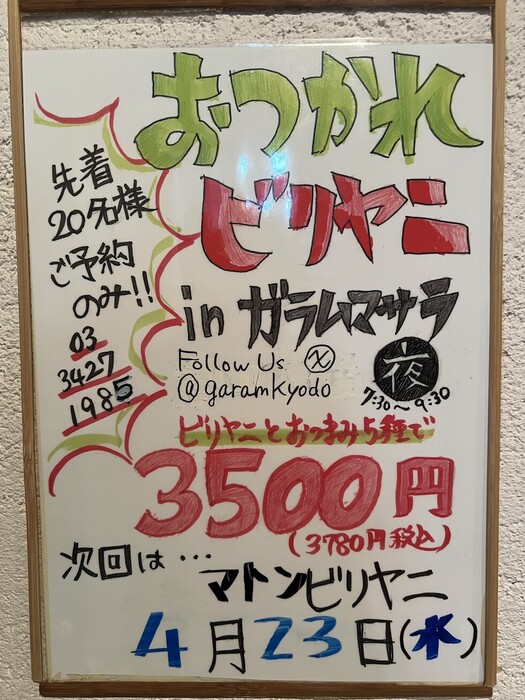 おつかれ
ビリヤニ
先着
20名様
ご予約
のみ!!
03
3427
1985
in ガラムマサラ
Follow Us X
@garamkyodo
夜
7:30〜9:30
ビリヤニとおつまみ5種で
3500円
(3780円税込)
次回は…
マトンビリヤニ
4月23日(水)